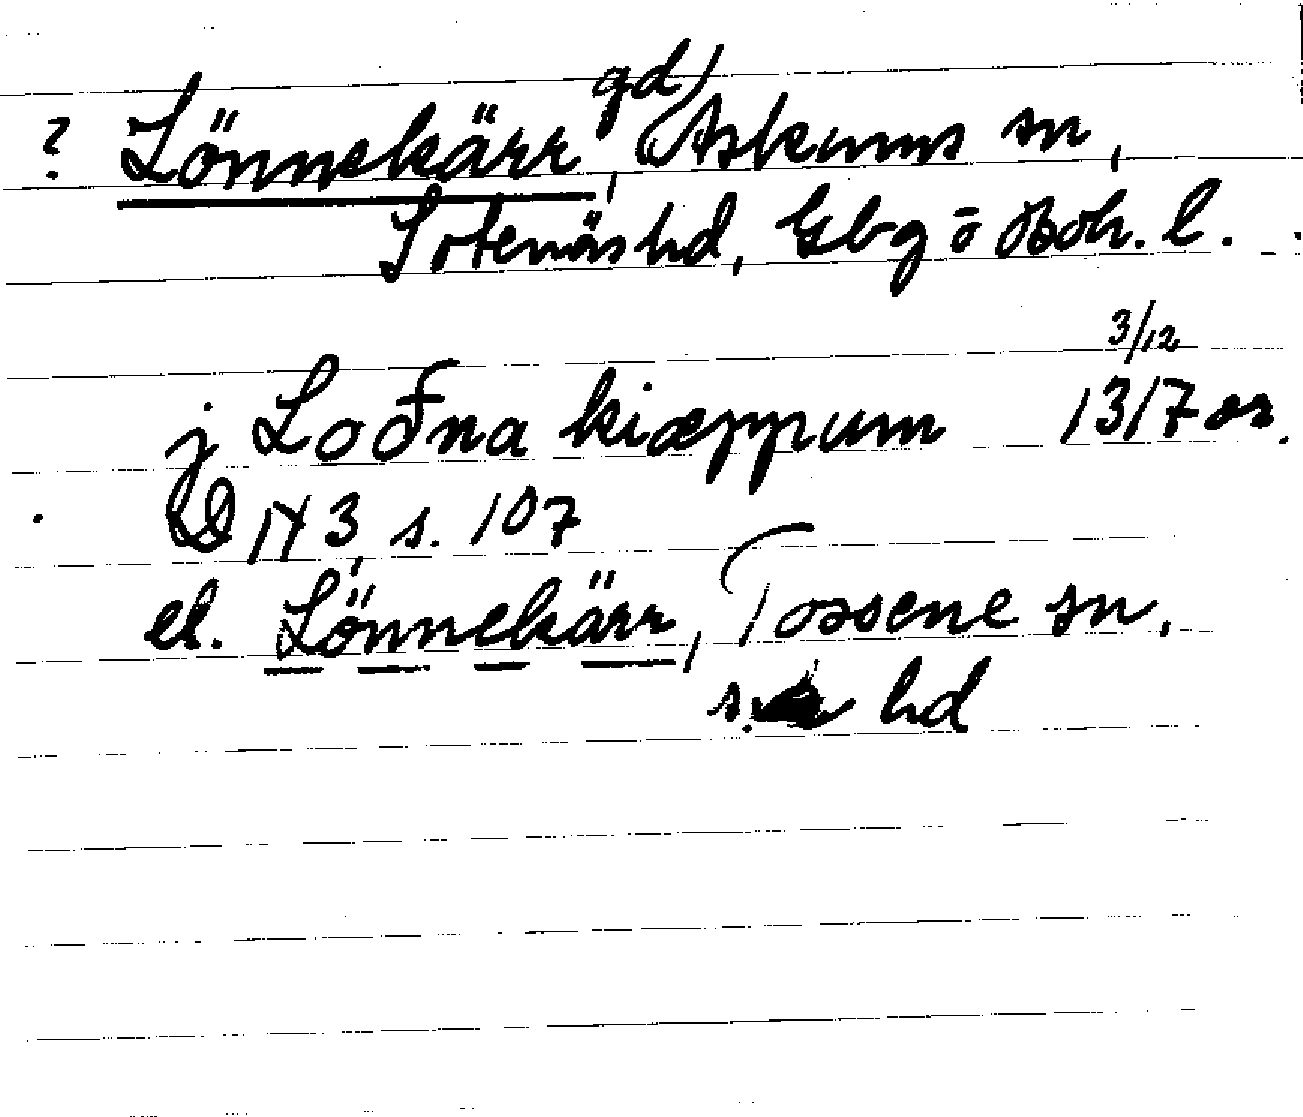 ? Lönnekärr, gd) Askums sn,
Sotenäs hd, Gbg o Boh. l.
3/12
j Loðna kiæppum 1317 or.
DN 3, s. 107
el. Lönnekärr, Tossene sn,
s. hd